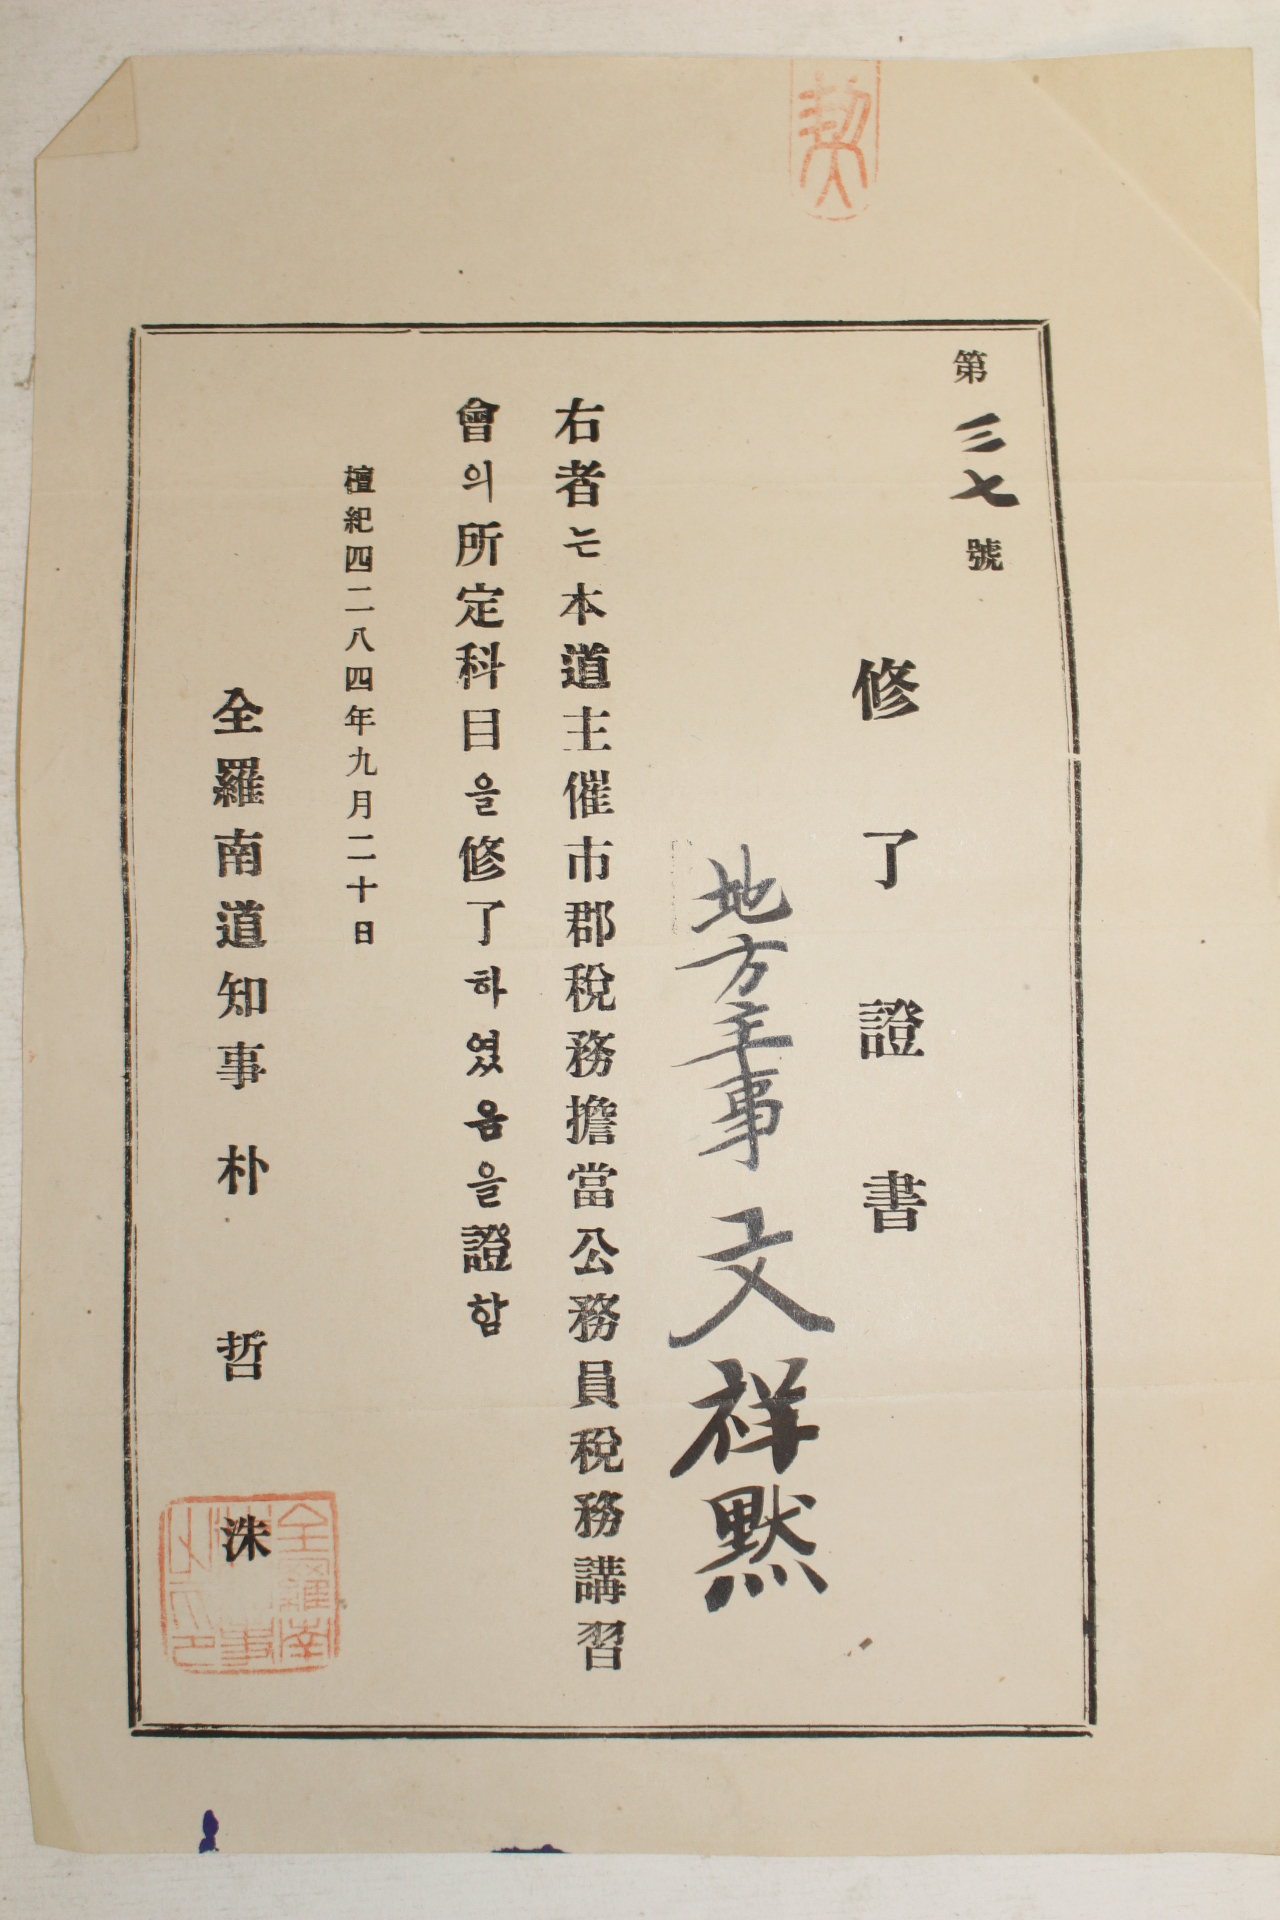 第三七號
修了證書
地方主事 文祥默
右者는本道主催市郡稅務擔當公務員稅務講習
會의所定科目을修了하였음을證함
檀紀四二八四年九月二十日
全羅南道知事 朴哲洙
契
全羅南
道知事
之印